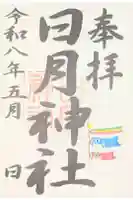 奉拝
日月神社
令和八年五月 日